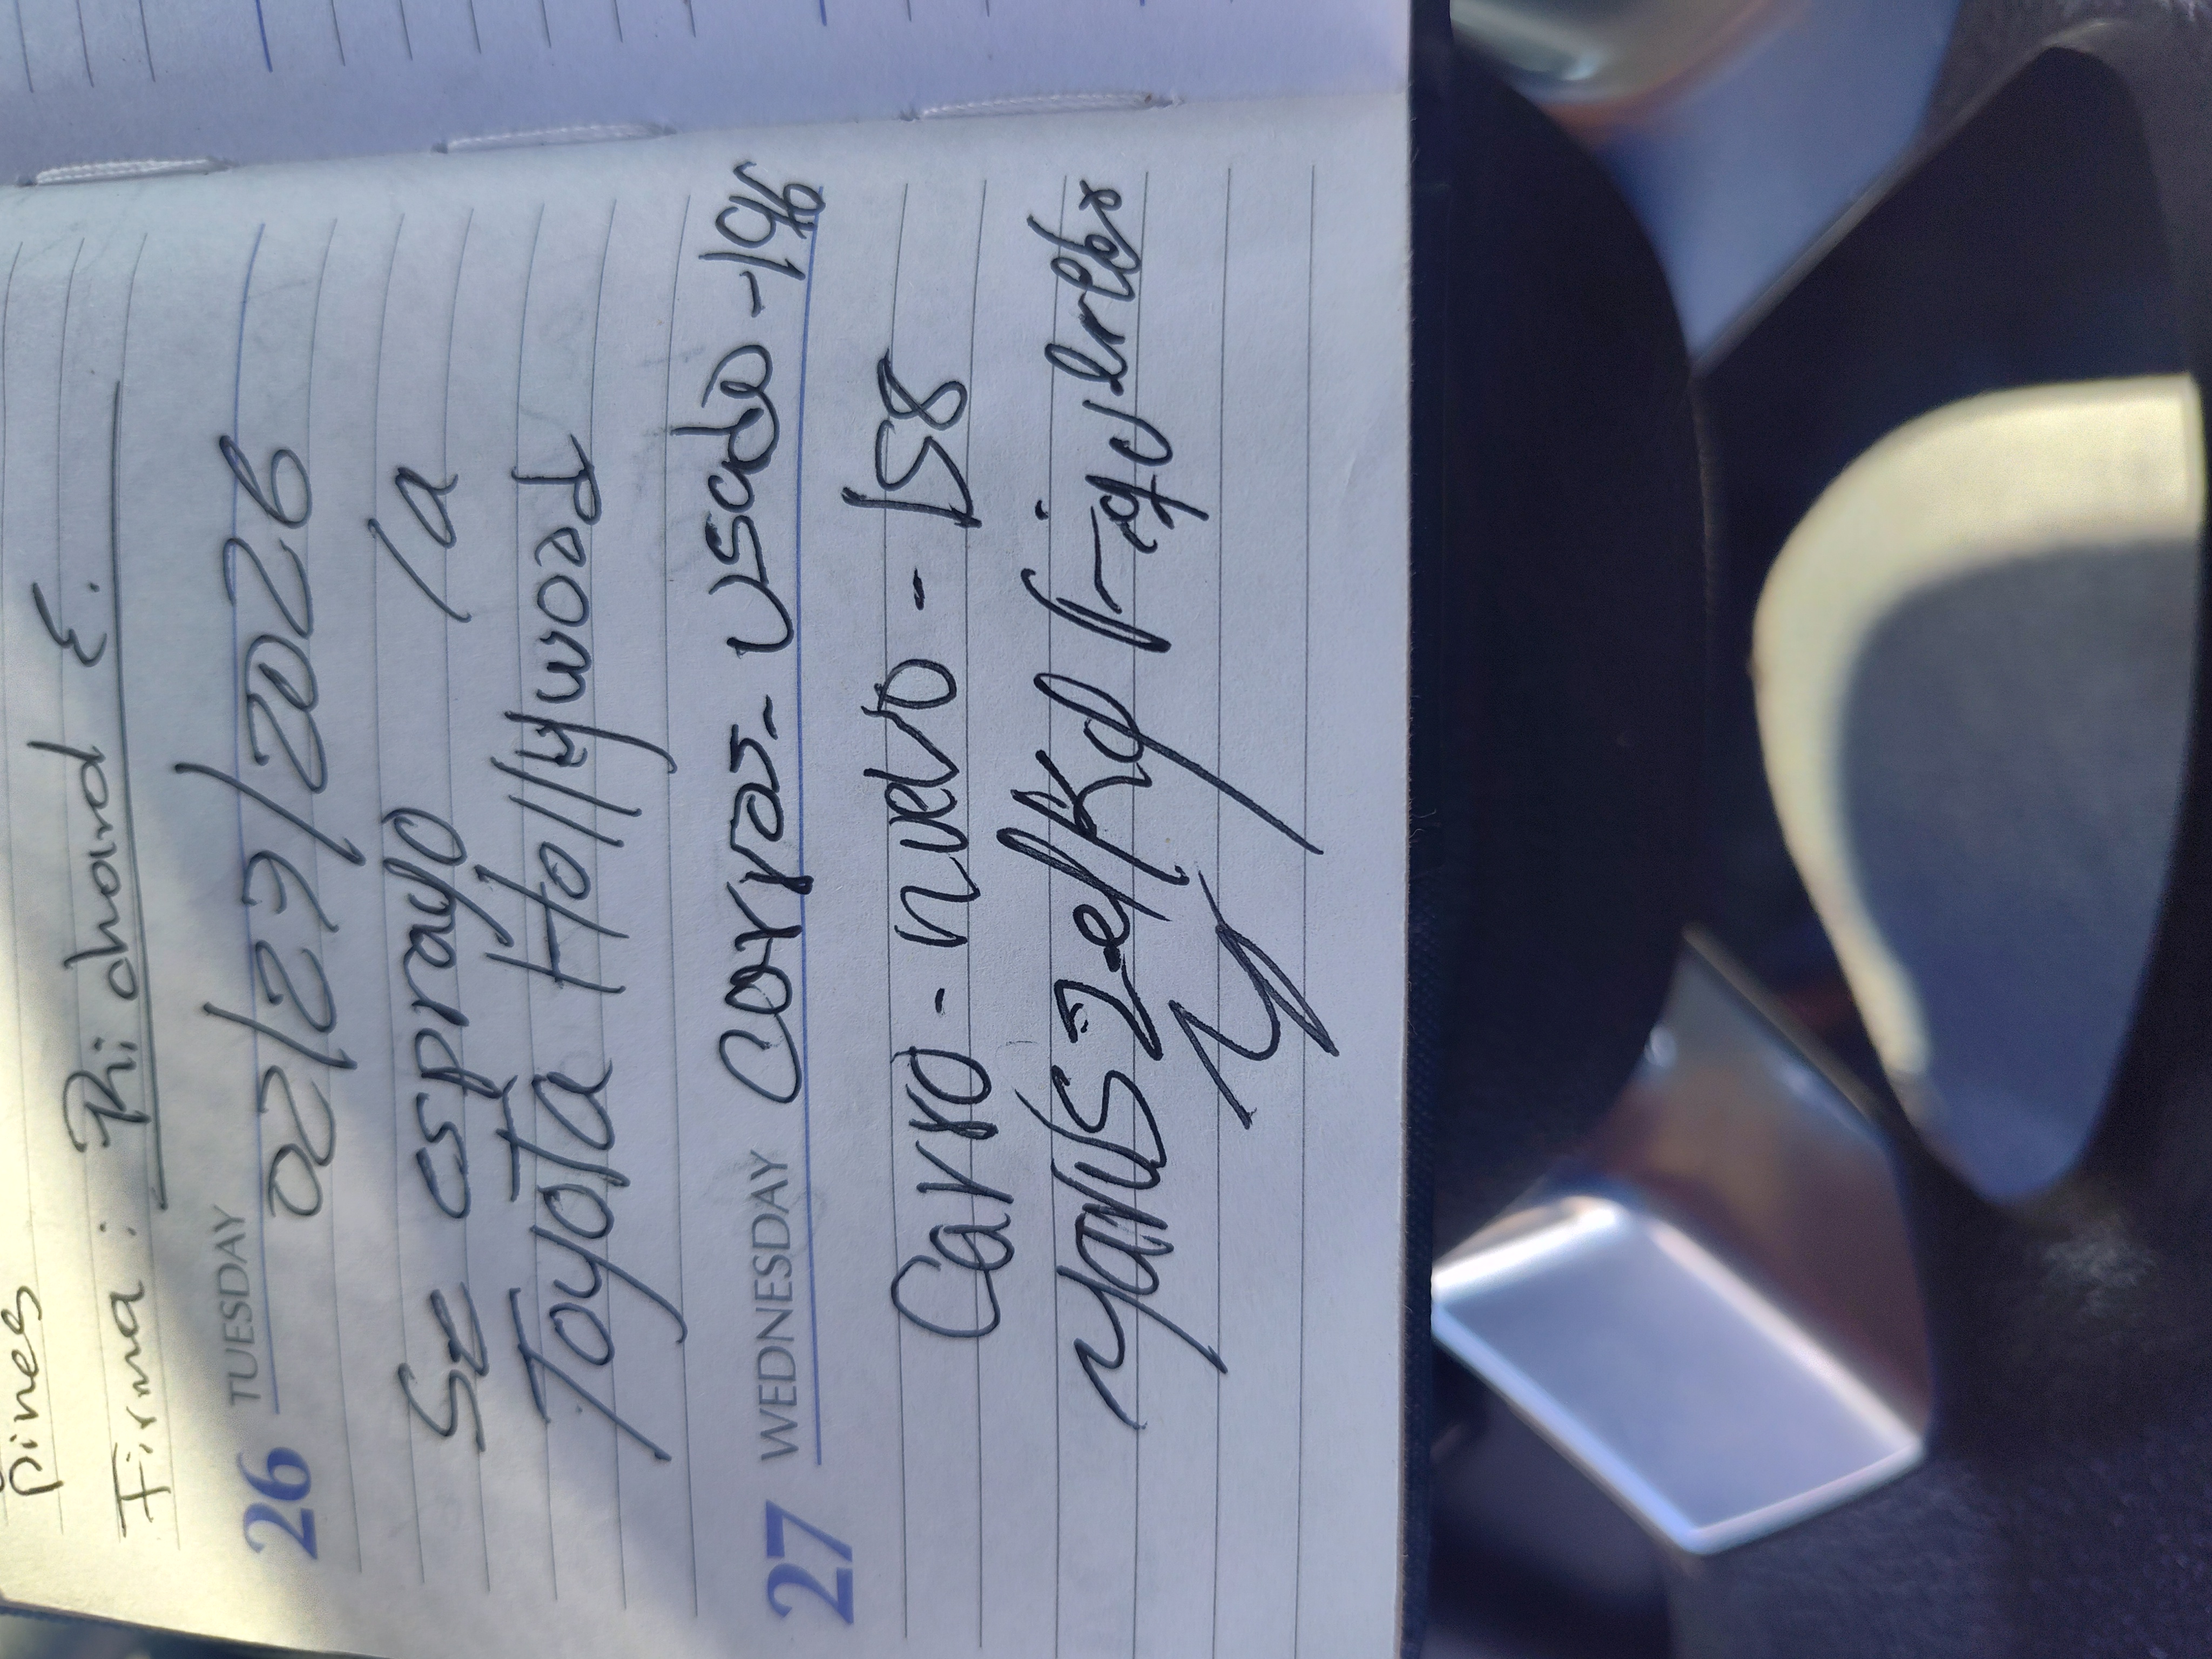 pines
Firma: Richard E.
26 TUESDAY
02/23/2026
Se esprayo la
Toyota Hollywood
27 WEDNESDAY
Carros - usado - 196
Carro - nuevo - 158